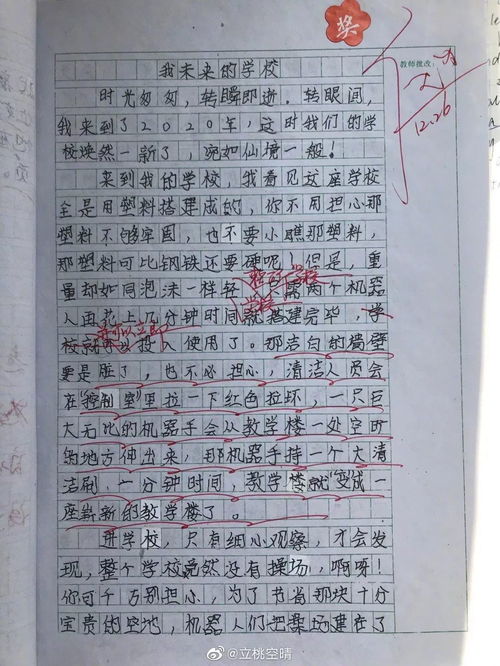 奖
教师批改:
12.26
我未来的学校
时光匆匆,转瞬即逝。转眼间,
我来到了2020年,这时我们的学
校焕然一新了,宛如仙境一般!
来到我的学校,我看见这座学校
全是用塑料搭建成的,你不用担心那
塑料不够牢固,也不要小瞧那塑料,
那塑料可比钢铁还要硬呢!但是,重
量却如同泡沫一样轻,只需两个机器
人再花上几分钟时间就搭建完毕,学
校就可以投入使用了。那洁白的墙壁
要是脏了,也不必担心,清洁人员会
在“控制室”里拉一下红色拉环,一只巨
大无比的机器手会从教学楼一处空旷
的地方伸出来,那机器手持一个大清
洁刷,一分钟时间,教学楼就“变”成一
座崭新的教学楼了。
进学校,只有细小观察,才会发
现,整个学校竟然没有操场,啊呀!
你可千万别担心,为了节省那块十分
宝贵的空地,机器人们把操场建在了
@立桃空晴